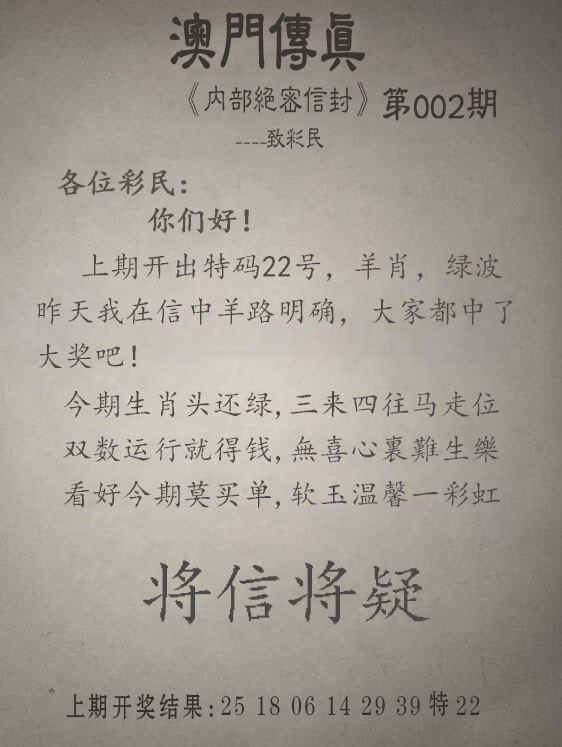 澳門傳眞
《内部絕密信封》第002期
----致彩民
各位彩民:
你们好!
上期开出特码22号，羊肖，绿波
昨天我在信中羊路明确，大家都中了
大奖吧!
今期生肖头还绿,三来四往马走位
双数运行就得钱,無喜心裏難生樂
看好今期莫买单,软玉温馨一彩虹
将信将疑
上期开奖结果:25 18 06 14 29 39 特22